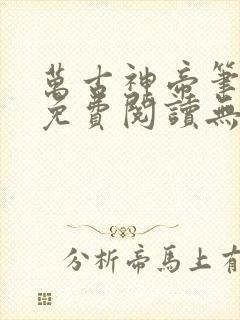 萬古神帝筆
免費閱讀無
分析帝馬上有